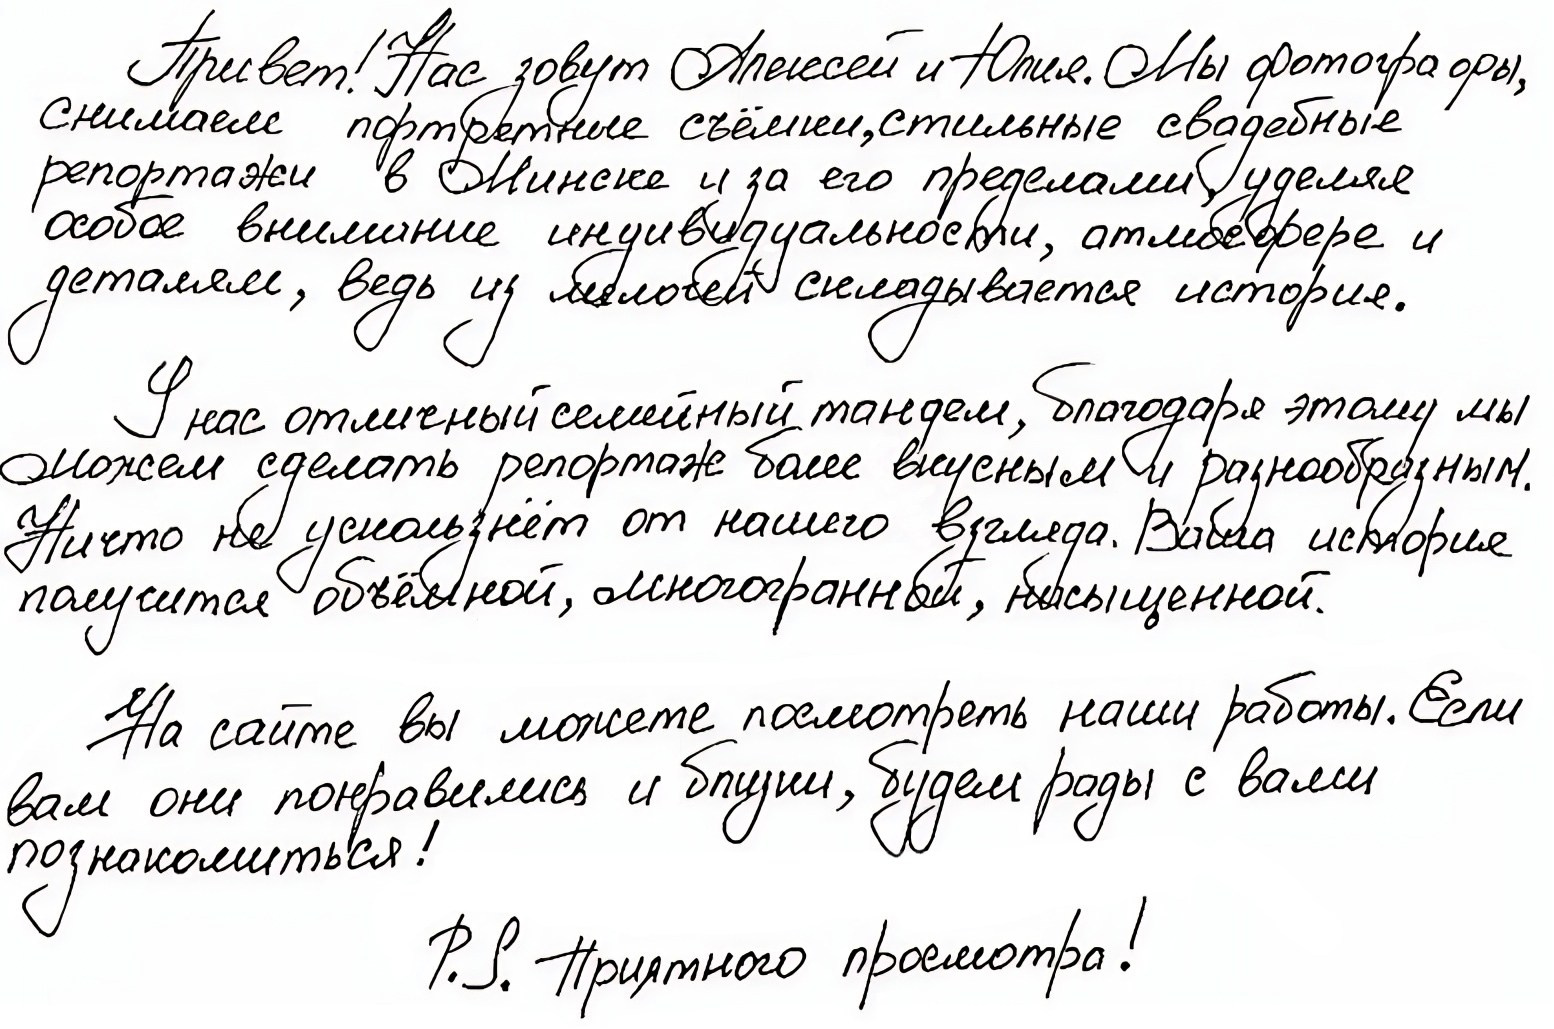 Привет! Нас зовут Алексей и Юлия. Мы фотографы,
снимаем портретные съёмки, стильные свадебные
репортажи в Минске и за его пределами, уделяя
особое внимание индивидуальности, атмосфере и
деталям, ведь из мелочей складывается история.
У нас отличный семейный тандем, благодаря этому мы
можем сделать репортаж более вкусным и разнообразным.
Ничто не ускользнёт от нашего взгляда. Ваша история
получится объёмной, многогранной, насыщенной.
На сайте вы можете посмотреть наши работы. Если
вам они понравились и близки, будем рады с вами
познакомиться!
P.S. Приятного просмотра!